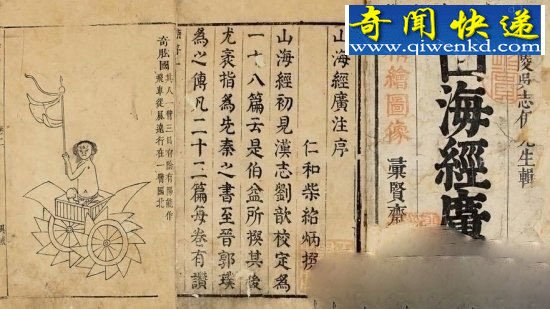 奇闻快递
www.qiwenkd.com
陵吳志伊先生輯
山海經廣
繪圖像
彙賢齋
山海經廣注序
仁和柴紹炳撰
山海經初見漢志劉歆校定為
一十八篇云是伯益所撰其後
尤袤指為先秦之書至晉郭璞
為之傳凡二十二篇每卷有讚
奇肱國
其人一臂三目有陰有陽能作
飛車從風遠行在一臂國北